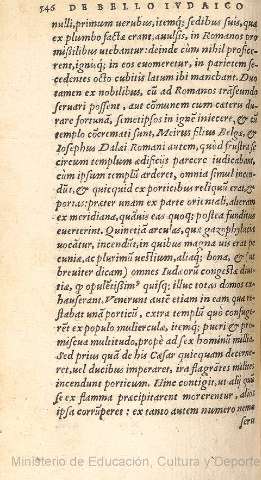 546 DE BELLO IVDAICO
nulli, primum verubus, itemq; sedibus suis, quæ
ex plumbo factæ erant, avulsis, in Romanos pro
missilibus utebantur: deinde cùm nihil profice-
rent, ignisq; in eos evomeretur, in parietem se-
cedentes octo cubitis latum ibi manebant. Duo
tamen ex nobilibus, cũ ad Romanos trãseundo
servari possent, aut cõmunem cum cæteris du-
rare fortunã, semetipsos in ignẽ iniecere, & cũ
templo cõcremati sunt, Meirus filius Belgæ, &
Iosephus Dalæi Romani autem, quòd frustra se
circum templum ædificijs parcere iudicabant,
cùm ipsum templũ arderet, omnia simul incen-
dũt, & quicquid ex porticibus reliquũ erat, &
portas: præter unam ex parte orientali, alteram
ex meridiana, quãvis eas quoq; postea funditus
everterint. Quinetiã arculas, quæ gazophylacia
vocãtur, incendũt, in quibus magna vis erat pe
cuniæ, ac plurimũ vestium, aliaq; bona, & (ut
breviter dicam) omnes Iudæorũ congestæ divi-
tiæ, q̃ opulẽtissimꝰ quisq; illuc totas domos ex-
hauserant. Venerunt autẽ etiam in eam quæ re-
stabat unã porticũ, extra templũ quò confuge-
rẽt ex populo mulierculæ, itemq; pueri & pro-
miscua multitudo, propè ad sex hominũ millia.
Sed prius quã de his Cæsar quicquam decerne-
ret, vel ducibus imperaret, ira flagrantes milites
incendunt porticum. Hinc contigit, ut alij quòd
se ex flamma præcipitarent morerentur, alios
ipsa corrũperet: ex tanto autem numero nemo
serv
Ministerio de Educación, Cultura y Deporte